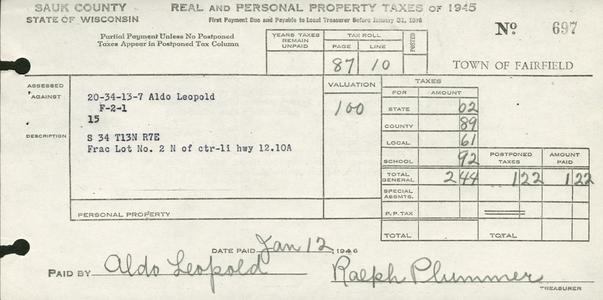 SAUK COUNTY REAL AND PERSONAL PROPERTY TAXES OF 1945
STATE OF WISCONSIN First Payment Due and Payable to Local Treasurer Before January 31, 1946
No. 697
Partial Payment Unless No Postponed
Taxes Appear in Postponed Tax Column
YEARS TAXES REMAIN UNPAID
TAX ROLL
PAGE LINE
POSTED
87 10
TOWN OF FAIRFIELD
ASSESSED AGAINST
20-34-13-7 Aldo Leopold
F-2-1
15
DESCRIPTION
S 34 T13N R7E
Frac Lot No. 2 N of ctr-li hwy 12.10A
PERSONAL PROPERTY
VALUATION
100
TAXES
FOR AMOUNT
STATE 62
COUNTY 89
LOCAL 61
SCHOOL 92
POSTPONED TAXES
AMOUNT PAID
TOTAL GENERAL 244 122 122
SPECIAL ASSMTS.
P.P. TAX
TOTAL TOTAL
DATE PAID Jan 12, 1946
PAID BY Aldo Leopold Ralph Plummer
TREASURER